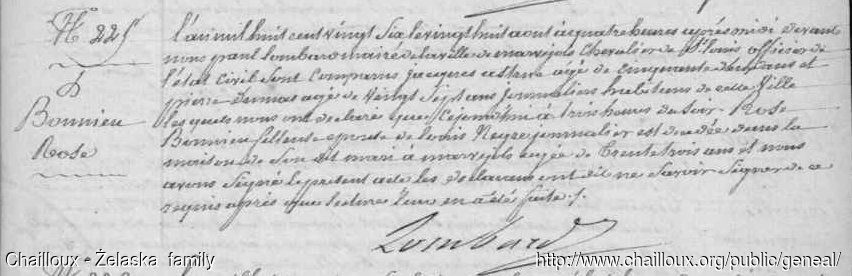 N° 225
D
Bonnieu
Rose
L'an mil huit cent vingt six le vingt huit aout à quatre heures après midi devant
nous paul Lombard maire de la ville de marvejols Chevalier de St Louis officier de
l'état Civil sont Comparus jacques astruc agé de Cinquante deux ans et
pierre Dumas agé de Vingt Sept ans journaliers habitans de cette Ville
lesquels nous ont declaré que Cejourdhui à trois heures du soir Rose
Bonnieu fileuse epouse de Louis Negre journalier est decedée dans la
maison de son dit mari à marvejols agée de trente trois ans et nous
avons Signé le present acte les declarans ont dit ne Savoir Signer de ce
requis après que lecture leur en a été faite
Lombard
Chailloux - Żelaska family
http://www.chailloux.org/public/geneal/